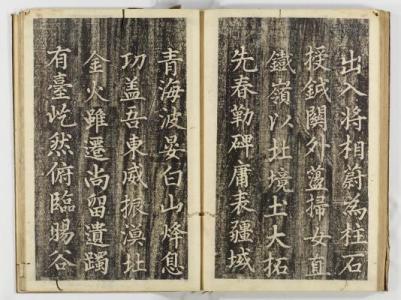 出入将相蔚為柱石
授鉞閫外盪掃女直
鐵嶺以北境土大拓
先春勒碑庸表疆域
青海波晏白山烽息
功盖吾東威振漠北
金火雖遷尚留遺躅
有臺屹然俯臨暘谷